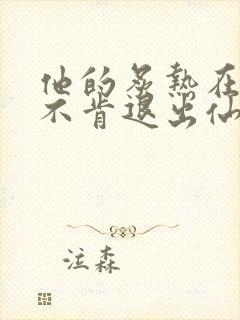 他的炙熱在
不肯退出仙
泣森